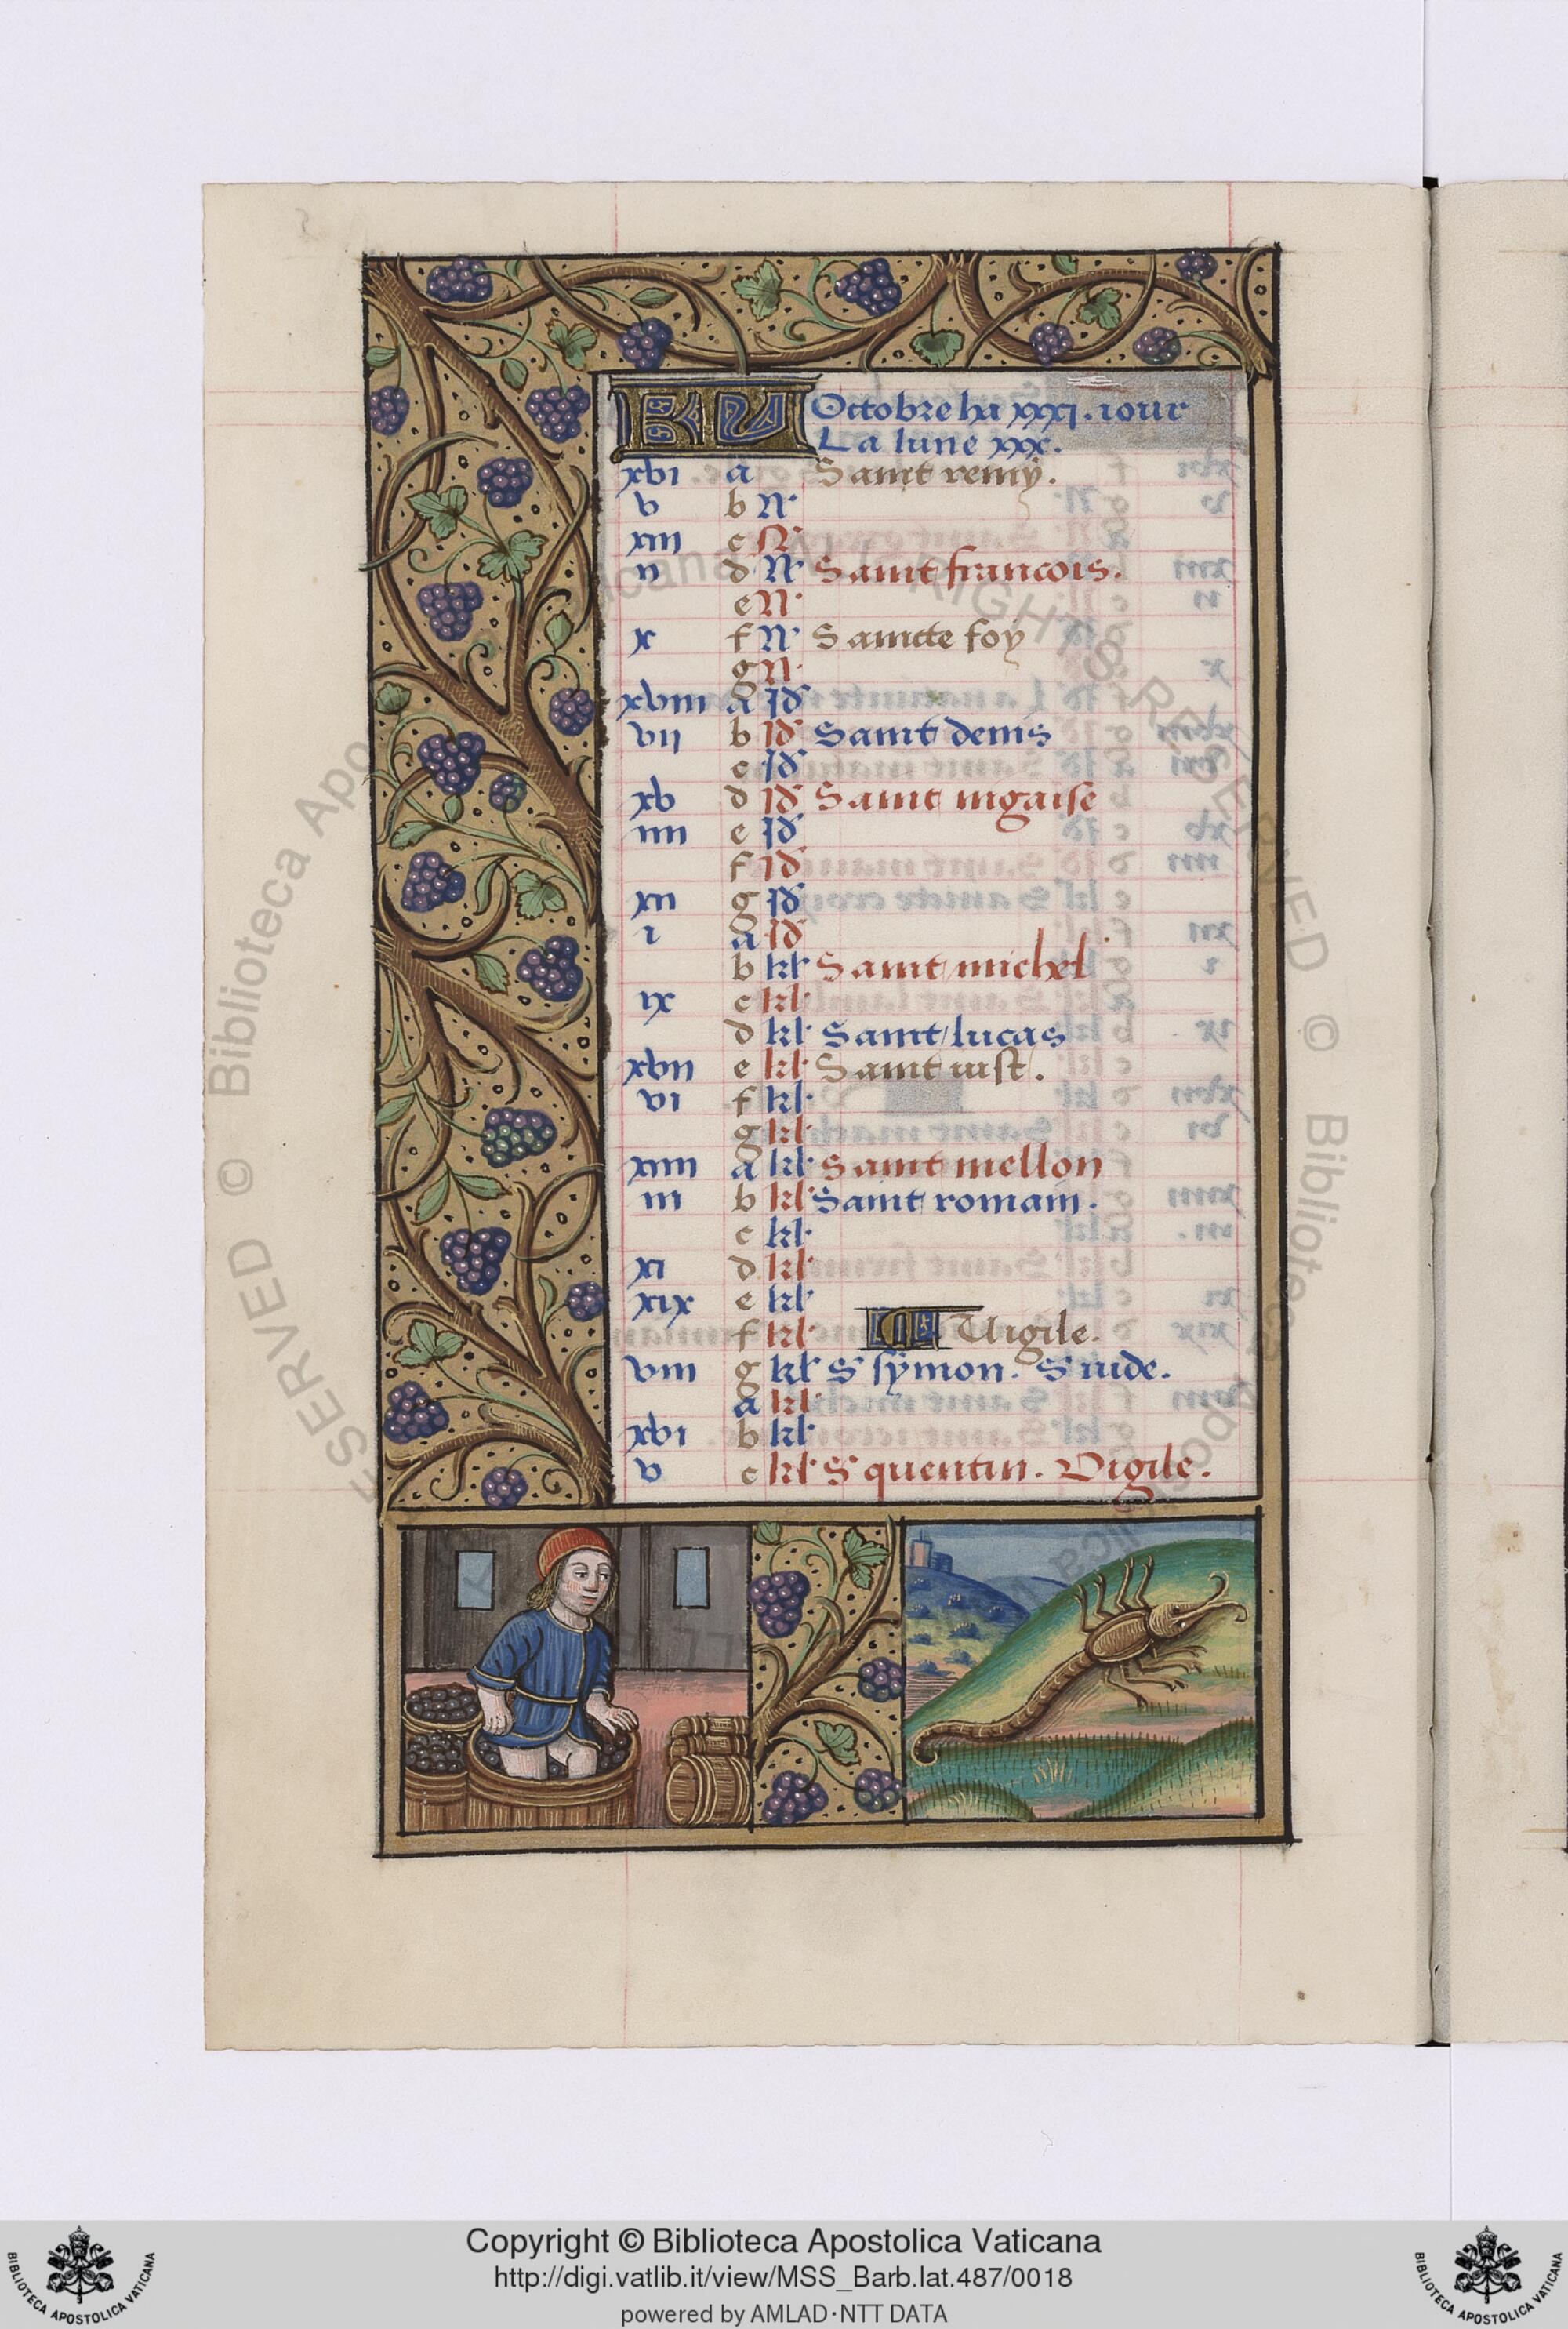 KL Octobre ha xxxi. iour
La lune xxx.
xvi a Saint remy.
v b N
xiii c N
ii d N Saint francois.
e N
x f N Saincte foy
g N
xviii a Id
vii b Id Saint denis
c Id
xv d Id Saint nigaise
iiii e Id
f Id
xii g Id
i a Id
b kl Saint michel
ix c kl
d kl Saint lucas
xvii e kl Saint iust.
vi f kl
g kl
xiiii a kl Saint mellon
iii b kl Saint romain.
c kl
xi d kl
xix e kl
f kl Vigile.
viii g kl S symon. S iude.
a kl
xvi b kl
v c kl S quentin. Vigile.
Copyright © Biblioteca Apostolica Vaticana
http://digi.vatlib.it/view/MSS_Barb.lat.487/0018
powered by AMLAD·NTT DATA
BIBLIOTECA APOSTOLICA VATICANA
BIBLIOTECA APOSTOLICA VATICANA